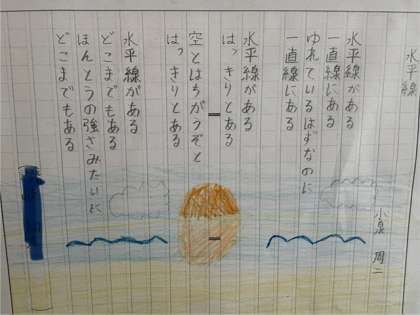 水平線
小泉 周二
水平線がある
一直線にある
ゆれているはずなのに
一直線にある
水平線がある
はっきりとある
空とはちがうぞと
はっきりとある
水平線がある
どこまでもある
ほんとうの強さみたいに
どこまでもある